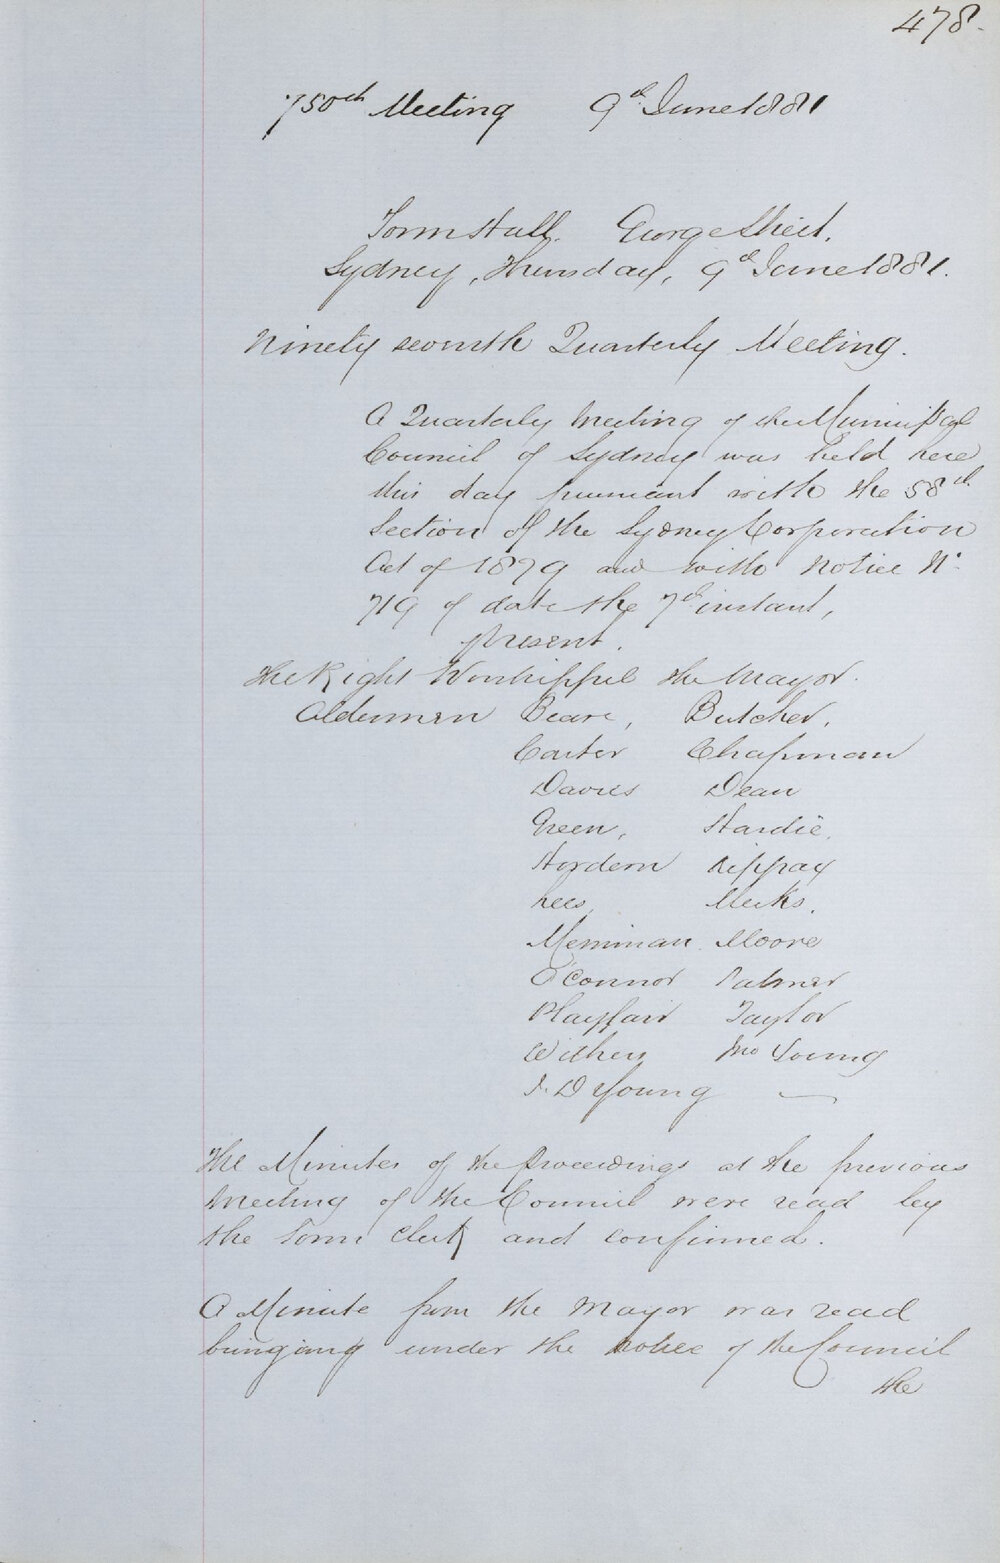 478.
750th Meeting 9th June 1881
Town Hall. George Street,
Sydney, Thursday, 9th June 1881.
Ninety seventh Quarterly Meeting.
A Quarterly Meeting of the Municipal
Council of Sydney was held here
this day pursuant with the 58th
Section of the Sydney Corporation
Act of 1879 and with Notice No.
719 of date the 7th instant,
present.
The Right Worshipful the Mayor.
Aldermen Beare, Butcher,
Carter Chapman
Davies Dean
Green, Hardie,
Hordern Kippax
Lees, Meeks,
Merriman Moore
O'Connor Palmer
Playfair Taylor
Withers Jno Young
J. D Young —
The Minutes of the proceedings at the previous
Meeting of the Council were read by
the Town Clerk and confirmed.
A Minute from the Mayor was read
bringing under the notice of the Council
the